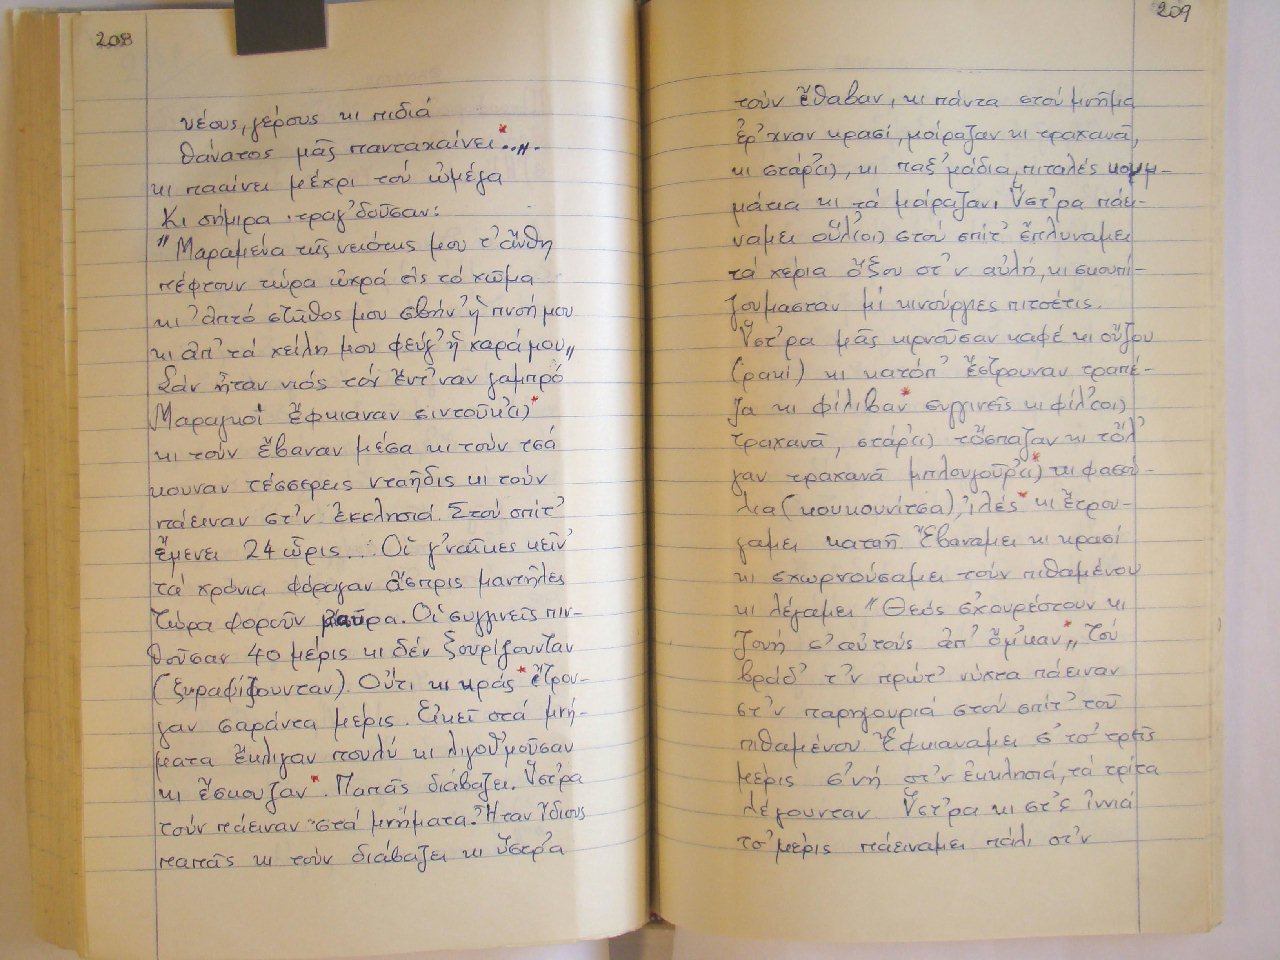 208
νέους, γέρους κι πιδιά
θάνατος μᾶς πανταχαίνει*...„.
κι πααίνει μέχρι τοὐ ὠμέγα
Κι σήμιρα τραγ'δοῦσαν:
"Μαραμένα τῆς νειότης μου τ' ἄνθη
πέφτουν τώρα ὠχρά εἰς τό χῶμα
κι' ἀπτό στῆθος μου σβήν' ἡ πνοή μου
κι ἀπ' τά χείλη μου φεύγ' ἡ χαρά μου„
Σάν ἦταν νιός τόν ἔντ'ναν γαμπρό
Μαραγκοί ἔφκιαναν σιντοῦκ(ι)*
κι τοὐν ἔβαναν μέσα κι τοὐν τσά
κουναν τέσσερεις νταῆδις κι τοὐν
πάειναν στ'ν ἐκκλησιά. Στοὐ σπίτ'
ἔμενει 24 ὧρις... Οἱ γ'ναῖκες κεῖν'
τά χρόνια φόραγαν ἄσπρις μαντῆλες
Τώρα φοροῦν μαῦρα. Οἱ συγγινεῖς πιν-
θοῦσαν 40 μέρις κι δέν ξουρίζουνταν
(ξηραφίζουνταν). Οὔτι κι κράς* ἔτρου-
γαν σαράντα μέρις. Εἰκεῖ στά μνή-
ματα ἔκλιγαν πουλύ κι λιγοθ'μοῦσαν
κι ἔσκουζαν*. Παπᾶς διάβαζει. Ὕστ'ρα
τοὐν πάειναν στά μνήματα. Ἦταν ἴδιους
παπᾶς κι τοὐν διάβαζει κι ὕστρ'α
209
τοὐν ἔθαβαν, κι πάντα στοὐ μνῆμα
ἔρ'χναν κρασί, μοίραζαν κι τραχανᾶ,
κι στάρ(ι), κι παξ'μάδια, πιταλές κομμ-
μάτια κι τά μοίραζαν. Ὕστ'ρα πάει-
ναμει οὗλ(οι) στοὐ σπίτ' ἔπλυναμει
τά χέρια ὄξου στ'ν αὐλή, κι σκουπί-
ζουμασταν μί κινούργιες πιτσέτις.
Ὕστ'ρα μᾶς κιρνοῦσαν καφέ κι οὖζου
(ρακί) κι κατόπ' ἔστρουναν τραπέ-
ζα κι φίλιβαν* συγγινεῖς κι φίλ(οι)
τραχανᾶ, στάρ(ι) τὄσπαζαν κι τὄλ'
γαν τραχανᾶ μπλουγοῦρ'(ι)* κι φασού-
λια (κουκουνίτσα), ἰλές* κι ἔτρου-
γαμει καταῆ. Ἔβαναμει κι κρασί
κι σχωρνούσαμει τοὐν πιθαμένου
κι λέγαμει "Θεός σχουρέστουν κι
ζουή σ' αὐτούς ἀπ' ὄμ'καν*„ Τοὐ
βράδ' τ'ν πρώτ' νύχτα πάειναν
στ'ν παρηγουριά στοὐ σπίτ' τοῦ
πιθαμένου Ἔφκιαναμει σ' τσ' τρεῖς
μέρις σ'νή στ'ν ἐκκλησιά, τά τρίτα
λέγουνταν. Ὕστ'ρα κι στ'ς ἰννιά
τσ' μέρις πάειναμει πάλι στ'ν